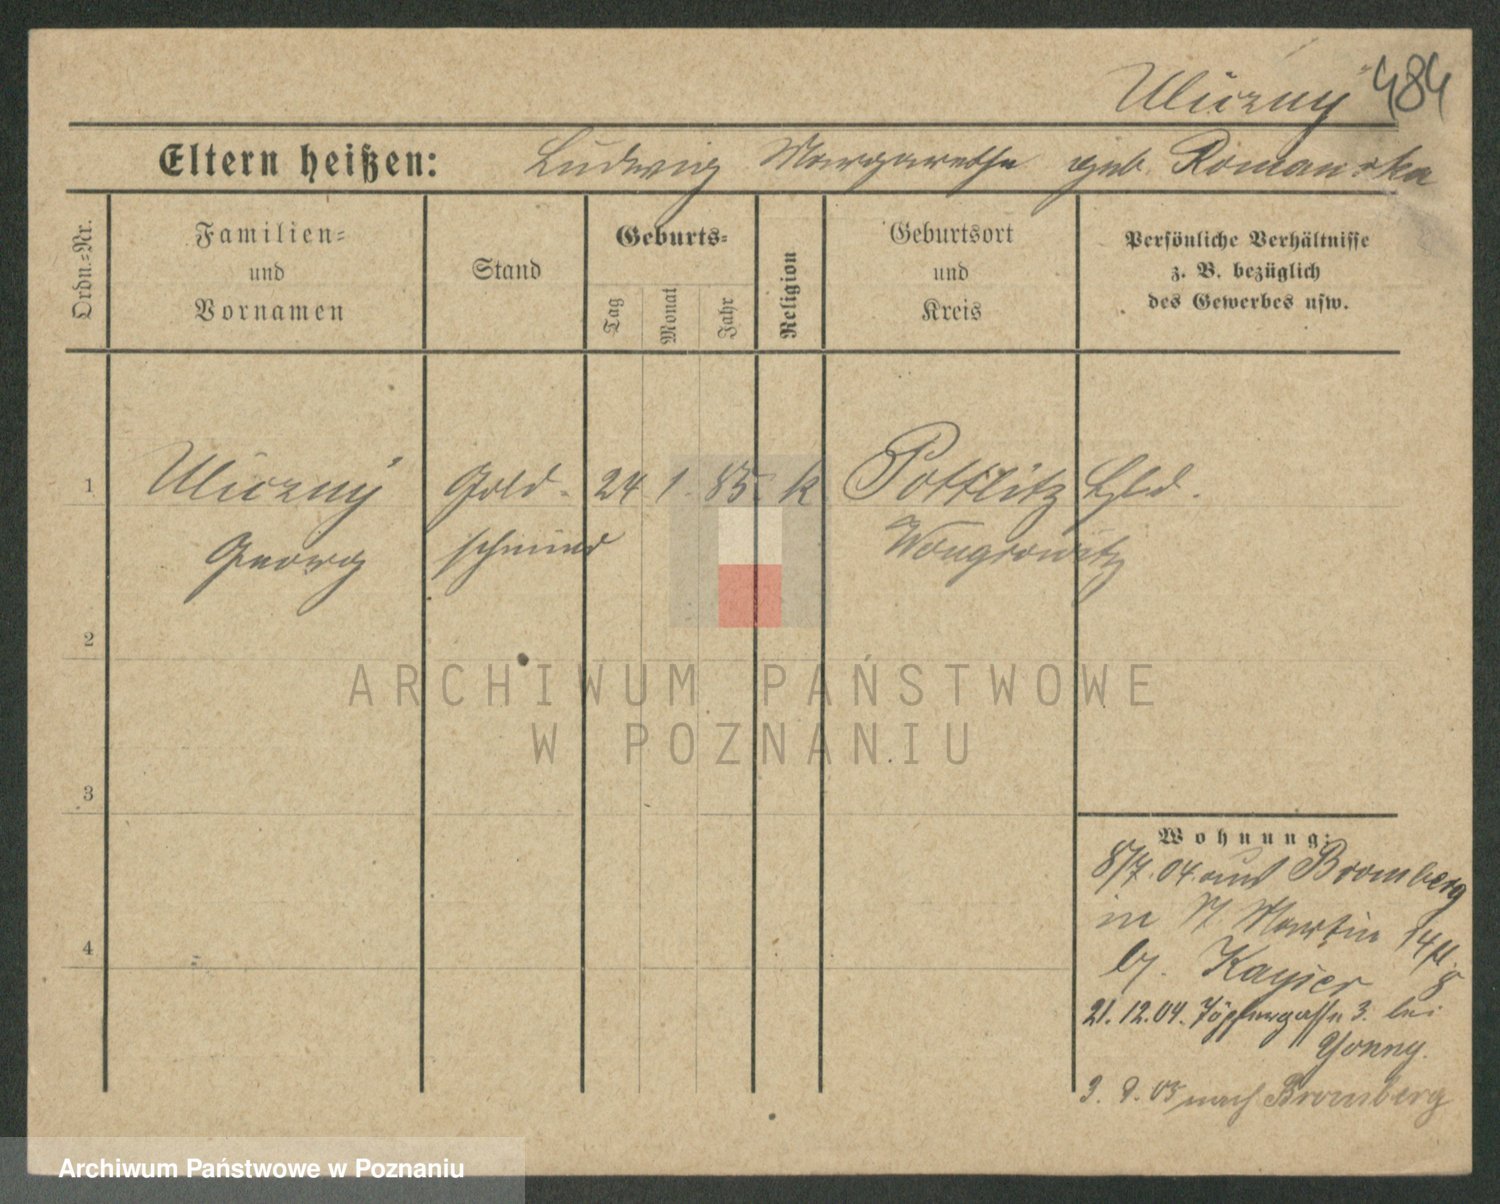 Uliczny 484
Eltern heißen: Ludwig Margarethe geb. Romanska
Ordn.=Nr.
Familien=
und
Vornamen
Stand
Geburts=
Tag
Monat
Jahr
Religion
Geburtsort
und
Kreis
Persönliche Verhältnisse
z. B. bezüglich
des Gewerbes usw.
1 Uliczny Gold- 24 1. 85. k Pottlitz
Georg schmied Wongrowitz
2
3
4
Wohnung:
8/7. 04. aus Bromberg
in St Martin 14
b/. Kayser
21. 12. 04. Töpfergasse 3. bei
3. 8. 05 nach Bromberg
ARCHIWUM PAŃSTWOWE
W POZNANIU
Archiwum Państwowe w Poznaniu